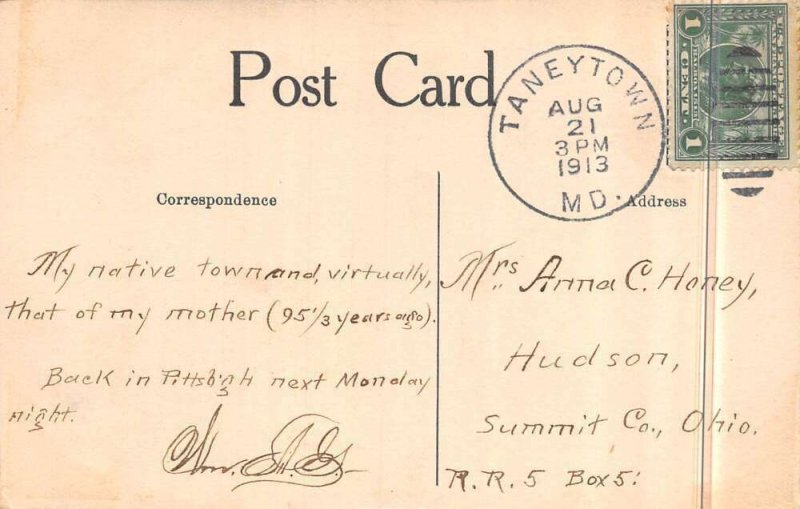 Post Card
TANEYTOWN
AUG
21
3 PM
1913
MD.
1 CENT 1
Correspondence
Address
My native town and, virtually,
that of my mother (95 1/3 years ago).
Back in Pittsbgh next Monday
night.
Mrs. Anna C. Honey,
Hudson,
Summit Co., Ohio.
R. R. 5 Box 5: